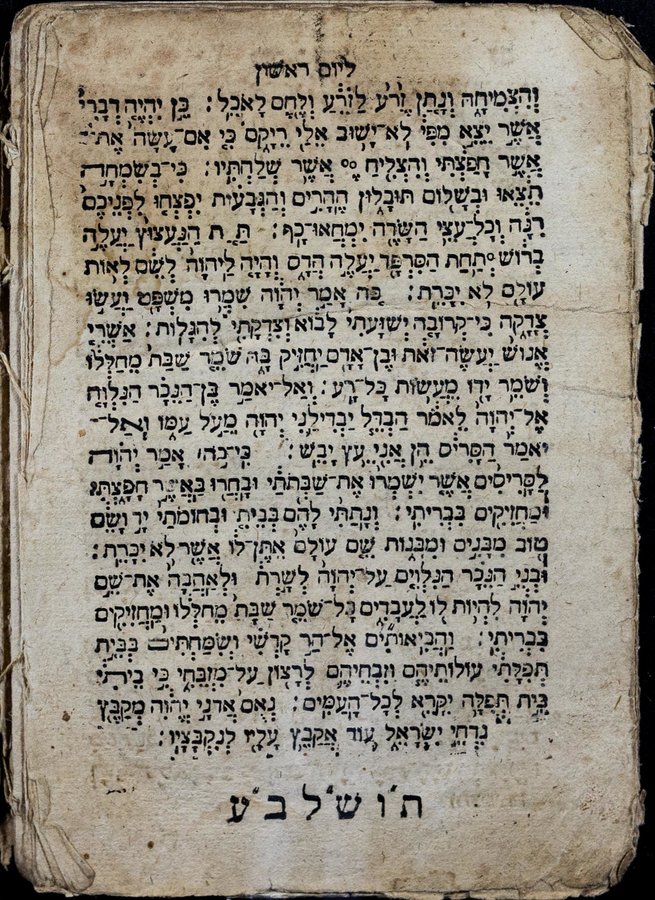 ליום ראשון
וְהִצְמִיחָהּ וְנָתַן זֶרַע לַזֹּרֵעַ וְלֶחֶם לָאֹכֵל׃ כֵּן יִהְיֶה דְבָרִי
אֲשֶׁר יֵצֵא מִפִּי לֹא־יָשׁוּב אֵלַי רֵיקָם כִּי אִם־עָשָׂה אֶת־
אֲשֶׁר חָפַצְתִּי וְהִצְלִיחַ אֲשֶׁר שְׁלַחְתִּיו׃ כִּי־בְשִׂמְחָה
תֵצֵאוּ וּבְשָׁלוֹם תּוּבָלוּן הֶהָרִים וְהַגְּבָעוֹת יִפְצְחוּ לִפְנֵיכֶם
רִנָּה וְכָל־עֲצֵי הַשָּׂדֶה יִמְחֲאוּ־כָף׃ תַּחַת הַנַּעֲצוּץ יַעֲלֶה
בְרוֹשׁ תַּחַת הַסִּרְפָּד יַעֲלֶה הֲדַס וְהָיָה לַיהוָה לְשֵׁם לְאוֹת
עוֹלָם לֹא יִכָּרֵת׃ כֹּה אָמַר יְהוָה שִׁמְרוּ מִשְׁפָּט וַעֲשׂוּ
צְדָקָה כִּי־קְרוֹבָה יְשׁוּעָתִי לָבוֹא וְצִדְקָתִי לְהִגָּלוֹת׃ אַשְׁרֵי
אֱנוֹשׁ יַעֲשֶׂה־זֹאת וּבֶן־אָדָם יַחֲזִיק בָּהּ שֹׁמֵר שַׁבָּת מֵחַלְּלוֹ
וְשֹׁמֵר יָדוֹ מֵעֲשׂוֹת כָּל־רָע׃ וְאַל־יֹאמַר בֶּן־הַנֵּכָר הַנִּלְוָה
אֶל־יְהוָה לֵאמֹר הַבְדֵּל יַבְדִּילַנִי יְהוָה מֵעַל עַמּוֹ וְאַל־
יֹאמַר הַסָּרִיס הֵן אֲנִי עֵץ יָבֵשׁ׃ כִּי־כֹה אָמַר יְהוָה
לַסָּרִיסִים אֲשֶׁר יִשְׁמְרוּ אֶת־שַׁבְּתֹתַי וּבָחֲרוּ בַּאֲשֶׁר חָפָצְתִּי
וּמַחֲזִיקִים בִּבְרִיתִי׃ וְנָתַתִּי לָהֶם בְּבֵיתִי וּבְחוֹמֹתַי יָד וָשֵׁם
טוֹב מִבָּנִים וּמִבָּנוֹת שֵׁם עוֹלָם אֶתֶּן־לוֹ אֲשֶׁר לֹא יִכָּרֵת׃
וּבְנֵי הַנֵּכָר הַנִּלְוִים עַל־יְהוָה לְשָׁרְתוֹ וּלְאַהֲבָה אֶת־שֵׁם
יְהוָה לִהְיוֹת לוֹ לַעֲבָדִים כָּל־שֹׁמֵר שַׁבָּת מֵחַלְּלוֹ וּמַחֲזִיקִים
בִּבְרִיתִי׃ וַהֲבִיאוֹתִים אֶל־הַר קָדְשִׁי וְשִׂמַּחְתִּים בְּבֵית
תְּפִלָּתִי עוֹלוֹתֵיהֶם וְזִבְחֵיהֶם לְרָצוֹן עַל־מִזְבְּחִי כִּי בֵיתִי
בֵּית תְּפִלָּה יִקָּרֵא לְכָל־הָעַמִּים׃ נְאֻם אֲדֹנָי יְהוִה מְקַבֵּץ
נִדְחֵי יִשְׂרָאֵל עוֹד אֲקַבֵּץ עָלָיו לְנִקְבָּצָיו׃
ת"ו ש"ל ב"ע